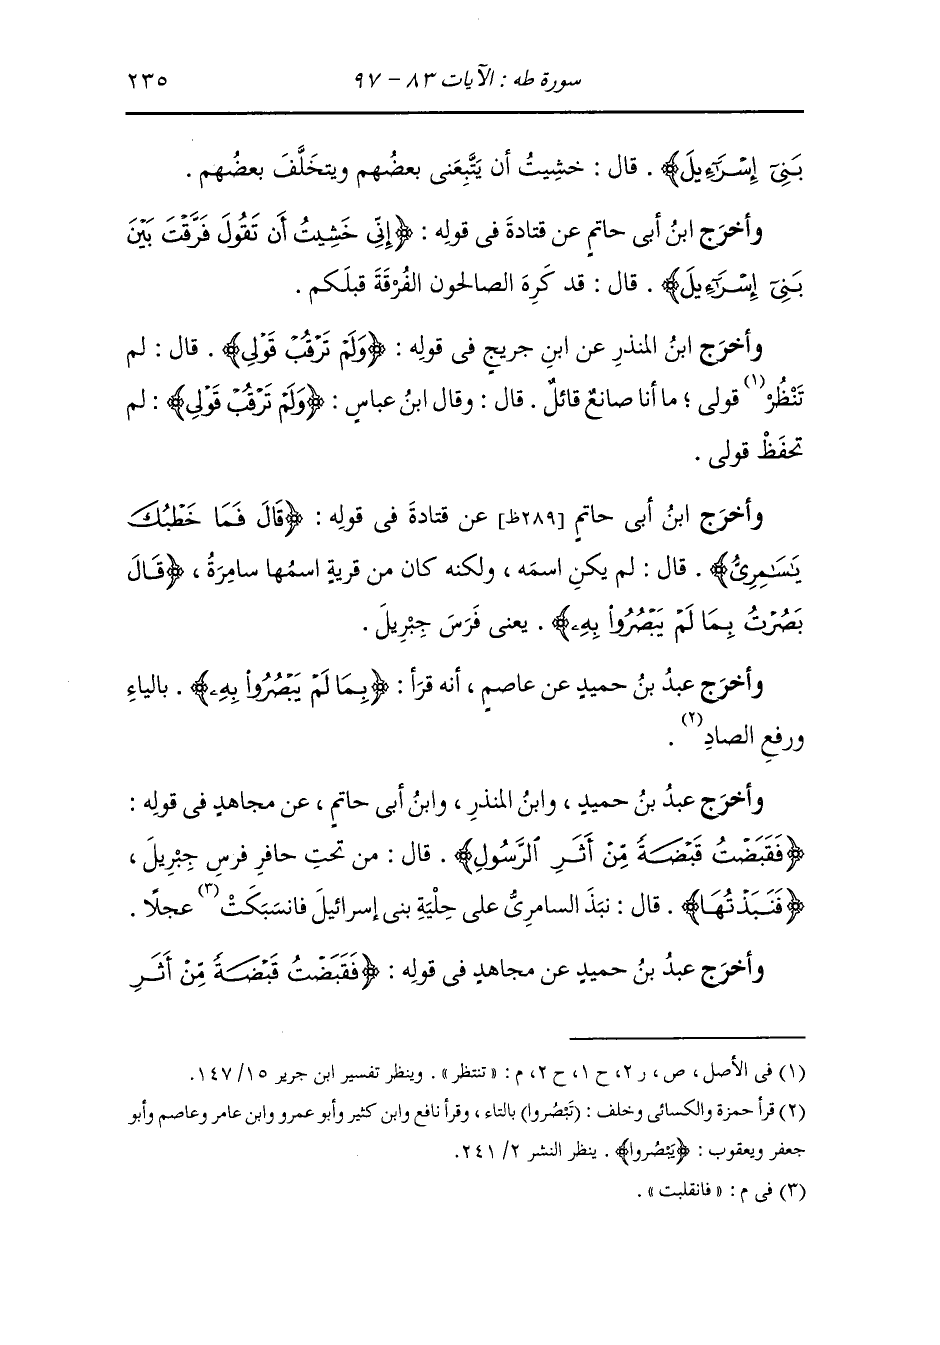 سورة طه : الآيات ٨٣ - ٩٧ ٢٣٥
بَنِىٓ إِسْرَٰٓءِيلَ﴾ . قال : خشِيتُ أن يَتَّبِعَنى بعضُهم ويتخَلَّفَ بعضُهم .
وأخرَج ابنُ أبى حاتمٍ عن قتادةَ فى قولِه : ﴿إِنِّى خَشِيتُ أَن تَقُولَ فَرَّقْتَ بَيْنَ
بَنِىٓ إِسْرَٰٓءِيلَ﴾ . قال : قد كَرِهَ الصالحون الفُرْقَةَ قبلَكم .
وأخرَج ابنُ المنذرِ عن ابنِ جريجٍ فى قولِه : ﴿وَلَمْ تَرْقُبْ قَوْلِى﴾ . قال : لم
تَنْظُرْ(١) قولى ؛ ما أنا صانعٌ قائلٌ . قال : وقال ابنُ عباسٍ : ﴿وَلَمْ تَرْقُبْ قَوْلِى﴾ : لم
تحفَظْ قولى .
وأخرَج ابنُ أبى حاتمٍ [٢٨٩ظ] عن قتادةَ فى قولِه : ﴿قَالَ فَمَا خَطْبُكَ
يَٰسَٰمِرِىُّ﴾ . قال : لم يكنِ اسمَه ، ولكنه كان من قريةٍ اسمُها سامِرَةُ ، ﴿قَالَ
بَصُرْتُ بِمَا لَمْ يَبْصُرُوا۟ بِهِۦ﴾ . يعنى فَرَسَ جِبْرِيلَ .
وأخرَج عبدُ بنُ حميدٍ عن عاصمٍ ، أنه قرَأ : ﴿بِمَا لَمْ يَبْصُرُوا۟ بِهِۦ﴾ . بالياءِ
ورفعِ الصادِ(٢) .
وأخرَج عبدُ بنُ حميدٍ ، وابنُ المنذرِ ، وابنُ أبى حاتمٍ ، عن مجاهدٍ فى قولِه :
﴿فَقَبَضْتُ قَبْضَةً مِّنْ أَثَرِ ٱلرَّسُولِ﴾ . قال : من تحتِ حافرِ فرسِ جِبْرِيلَ ،
﴿فَنَبَذْتُهَا﴾ . قال : نبَذَ السامرىُّ على حِلْيَةِ بنى إسرائيلَ فانسَبَكَتْ(٣) عجلًا .
وأخرَج عبدُ بنُ حميدٍ عن مجاهدٍ فى قولِه : ﴿فَقَبَضْتُ قَبْضَةً مِّنْ أَثَرِ
(١) فى الأصل ، ص ، ر ٢، ح ١، ح ٢، م : « تنتظر » . وينظر تفسير ابن جرير ١٥/ ١٤٧.
(٢) قرأ حمزة والكسائى وخلف : (تَبْصُروا) بالتاء ، وقرأ نافع وابن كثير وأبو عمرو وابن عامر وعاصم وأبو
جعفر ويعقوب : ﴿يَبْصُروا﴾ . ينظر النشر ٢/ ٢٤١.
(٣) فى م : « فانقلبت » .